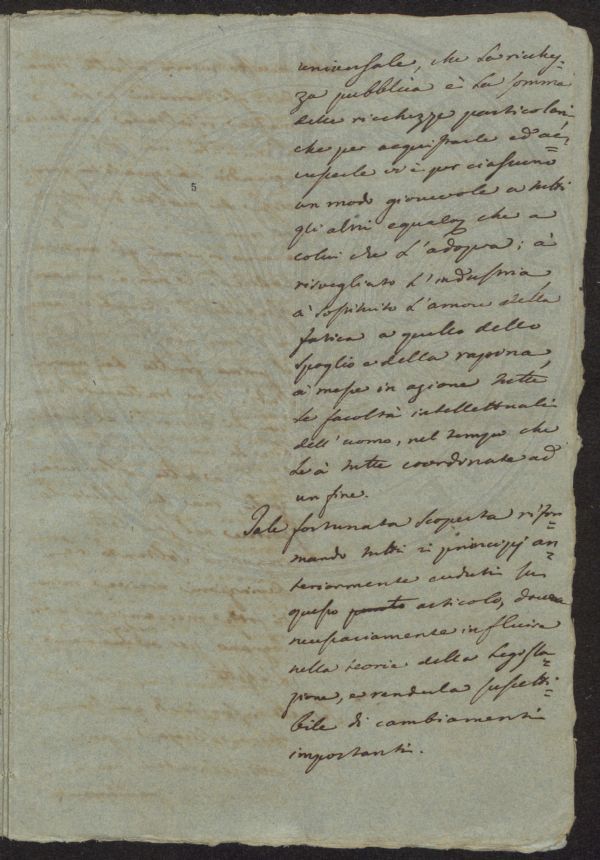 5
universale, che la ricchez-
za pubblica è la somma
delle ricchezze particolari,
che per acquistarle ed ac-
crescerle vi è per ciascuno
un modo giovevole a tutti
gli altri egualm. che a
colui che l'adopra; à
risvegliato l'industria
à sostituito l'amore della
fatica a quello dello
spoglio e della rapina,
à messo in azione tutte
le facoltà intellettuali
dell'uomo, nel tempo che
le à tutte coordinate ad
un fine.
Tale fortunata scoperta rifor-
mando tutti i principj an-
teriormente creduti su
questo punto articolo, dovea
necessariamente influire
nella teoria della legisla-
zione, e renderla suscetti-
bile di cambiamenti
importanti.